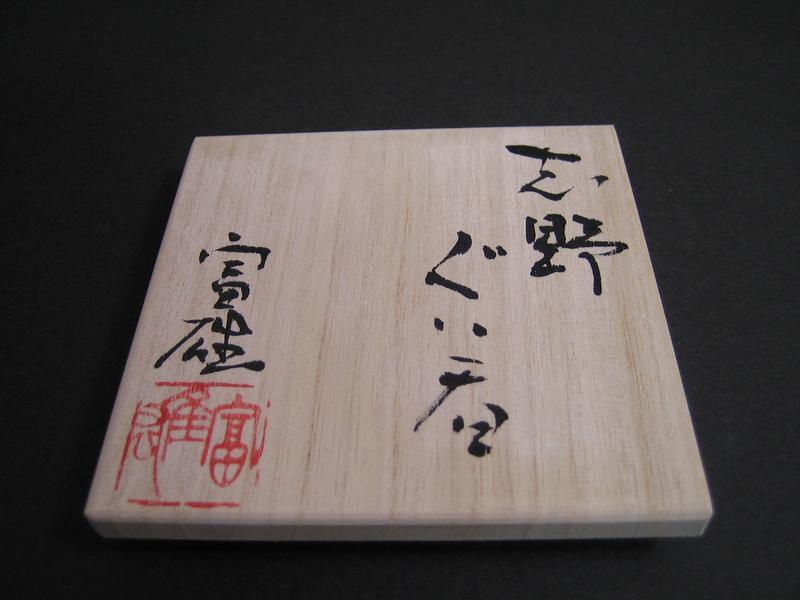 志野
ぐい呑
富雄